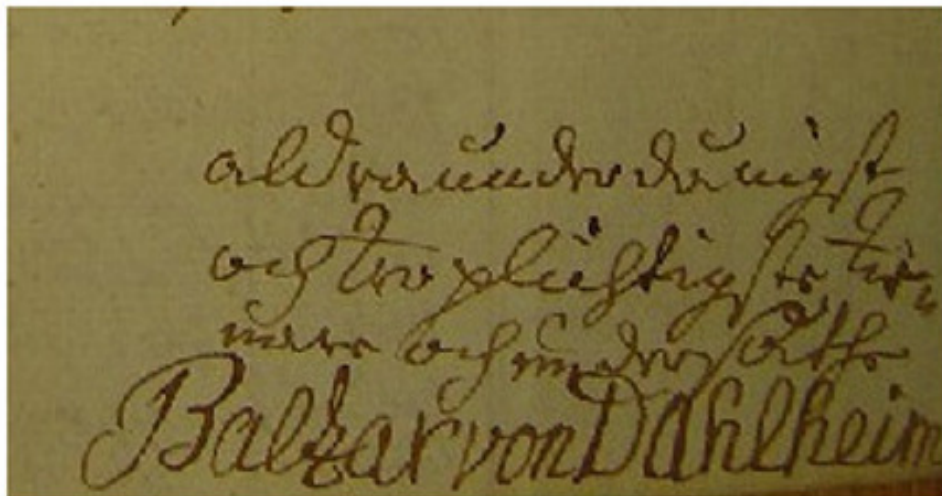 aldraunderdånigst
och troplichtigste tie-
nare och undersåthe
Baltzar von Dahlheim